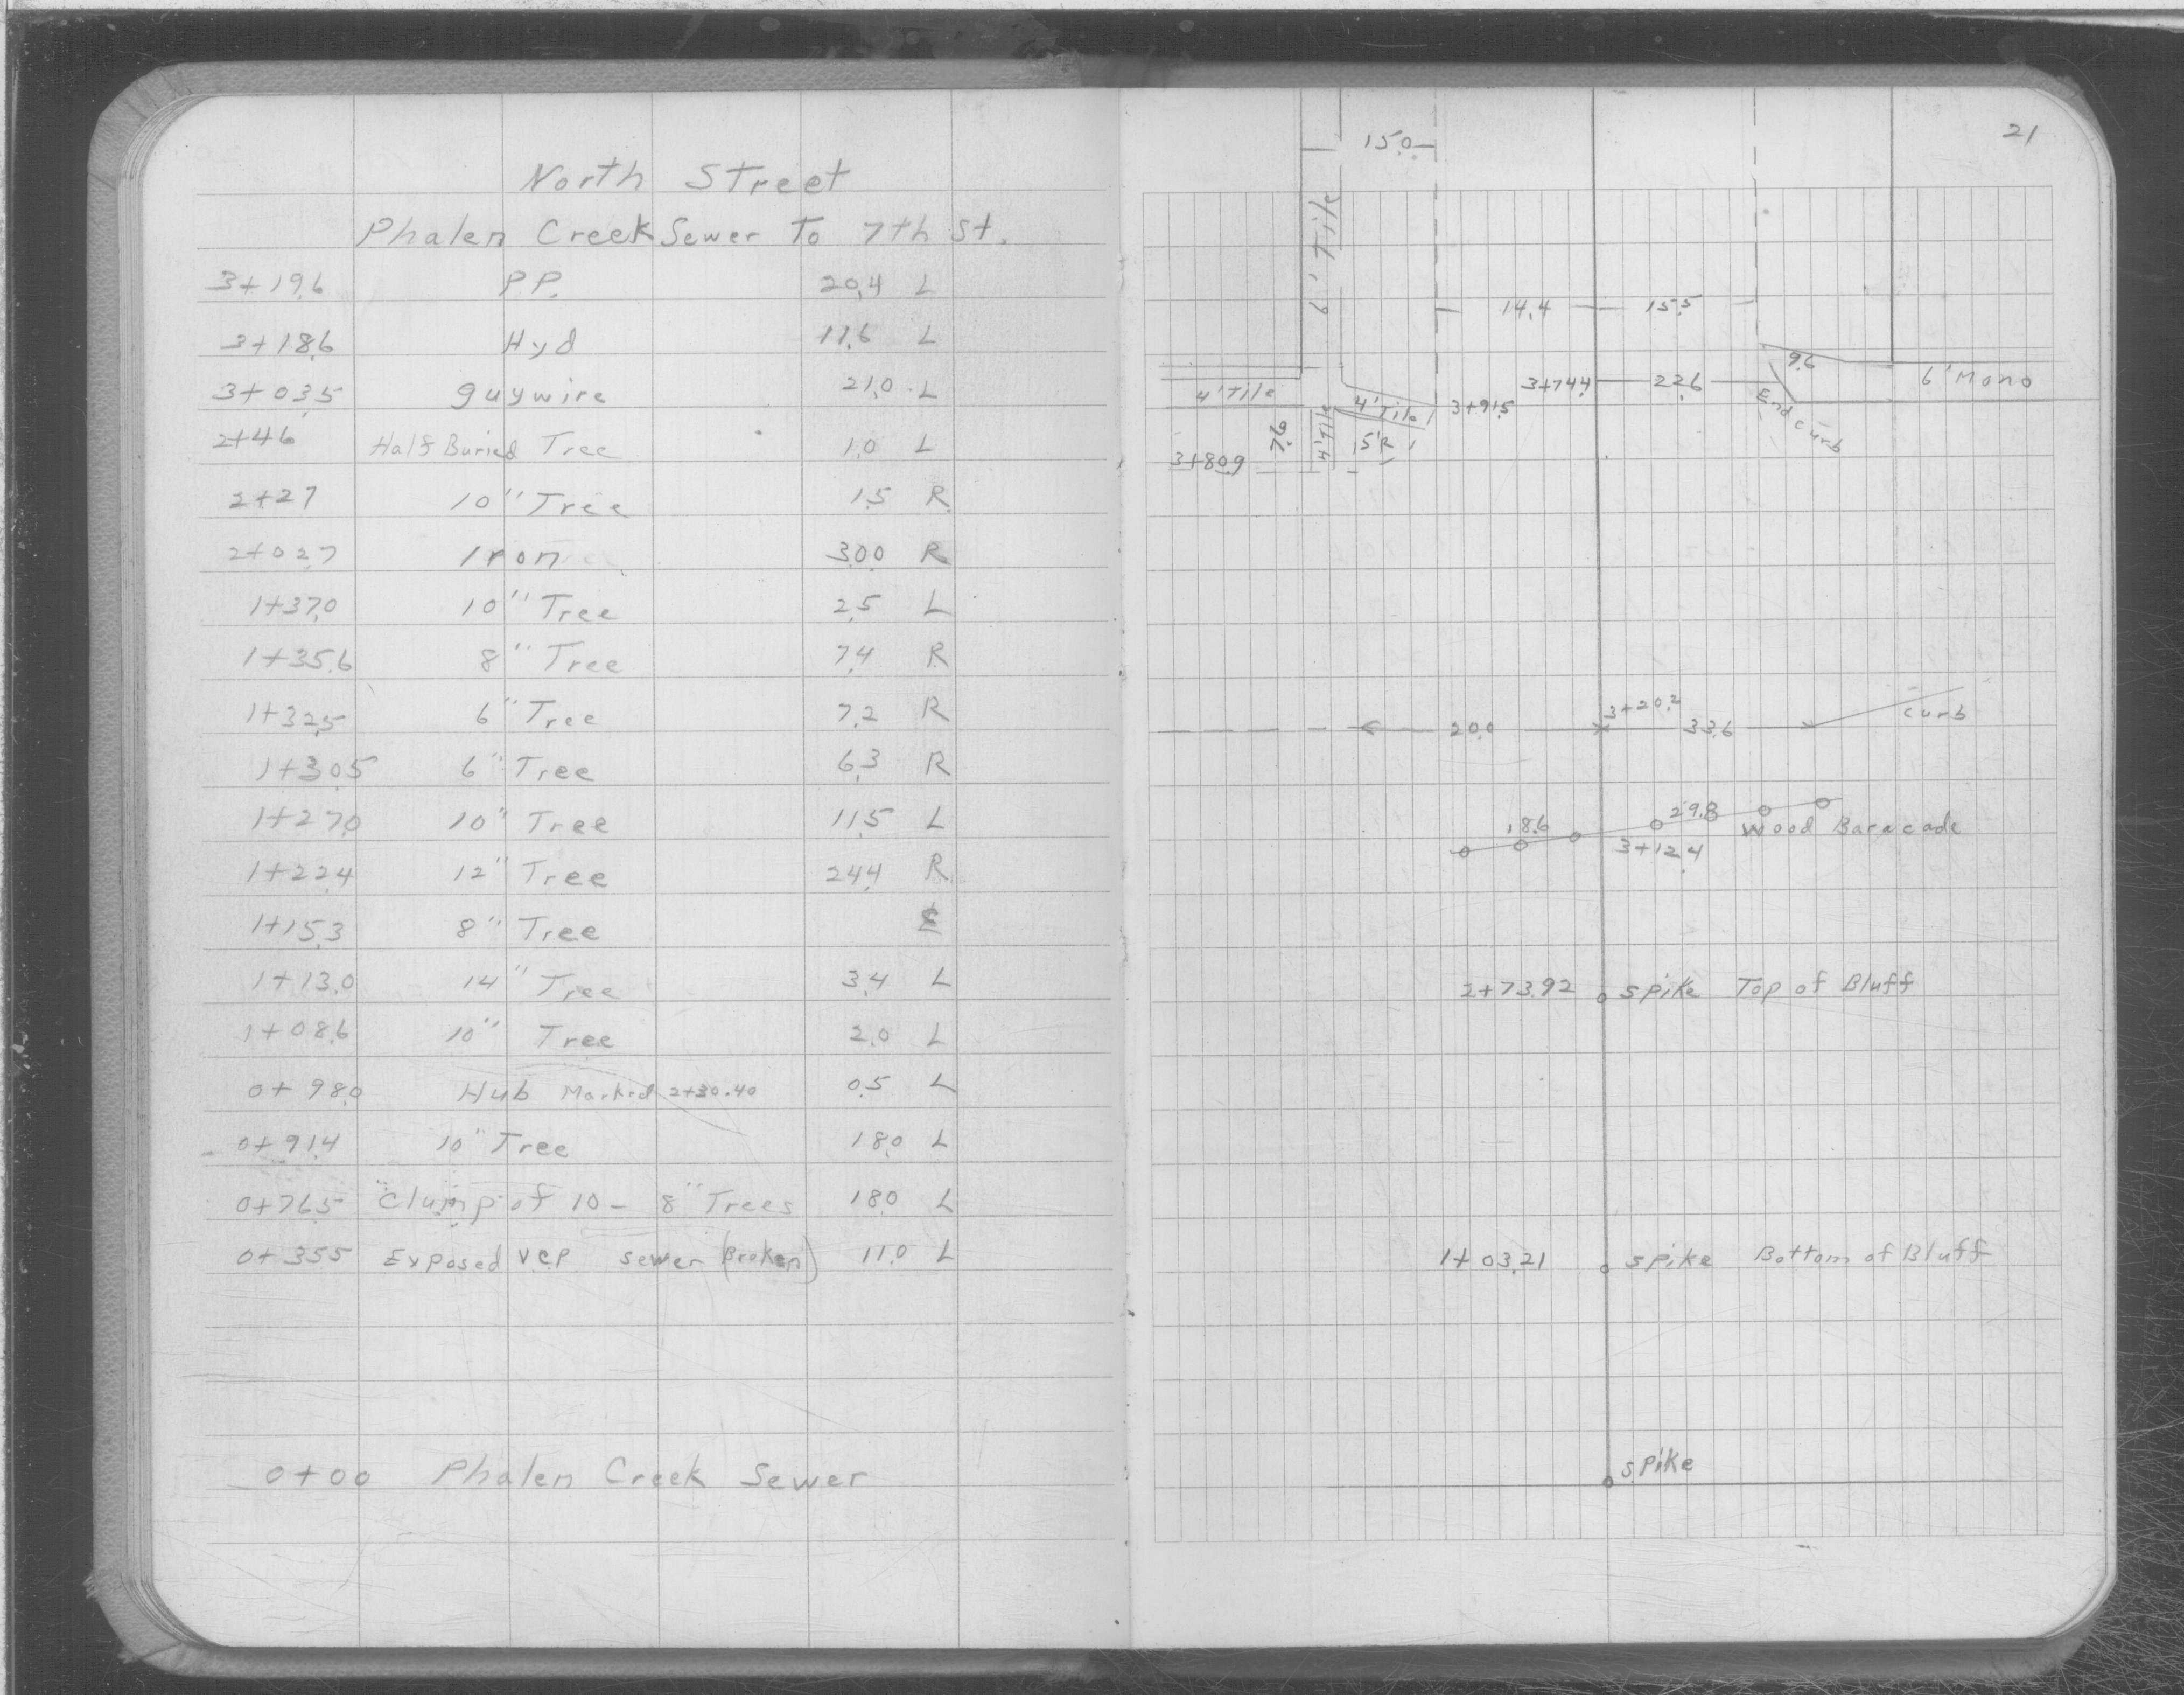 North Street
Phalen Creek Sewer To 7th St.
3+19.6 P.P. 20.4 L
3+18.6 Hyd 11.6 L
3+03.5 guywire 21.0 L
2+46 Half Buried Tree 1.0 L
2+27 10" Tree 1.5 R
2+02.7 Iron 30.0 R
1+37.0 10" Tree 2.5 L
1+35.6 8" Tree 7.4 R
1+32.5 6" Tree 7.2 R
1+30.5 6" Tree 6.3 R
1+27.0 10" Tree 11.5 L
1+22.4 12" Tree 24.4 R
1+15.3 8" Tree ℄
1+13.0 14" Tree 3.4 L
1+08.6 10" Tree 2.0 L
0+98.0 Hub Marked 2+30.40 0.5 L
0+91.4 10" Tree 18.0 L
0+76.5 Clump of 10 - 8" Trees 18.0 L
0+35.5 Exposed V.C.P. Sewer (Broken) 11.0 L
0+00 Phalen Creek Sewer
21
15.0
6' Tile
14.4 15.5
9.6
4' Tile 4' Tile 3+91.5 3+74.4 22.6 6' Mono
End curb
3+80.9 7.6 4' Tile 15'R
20.0 3+20.2 33.6 curb
18.6 29.8
3+12.4 Wood Baracade
2+73.92 spike Top of Bluff
1+03.21 spike Bottom of Bluff
spike